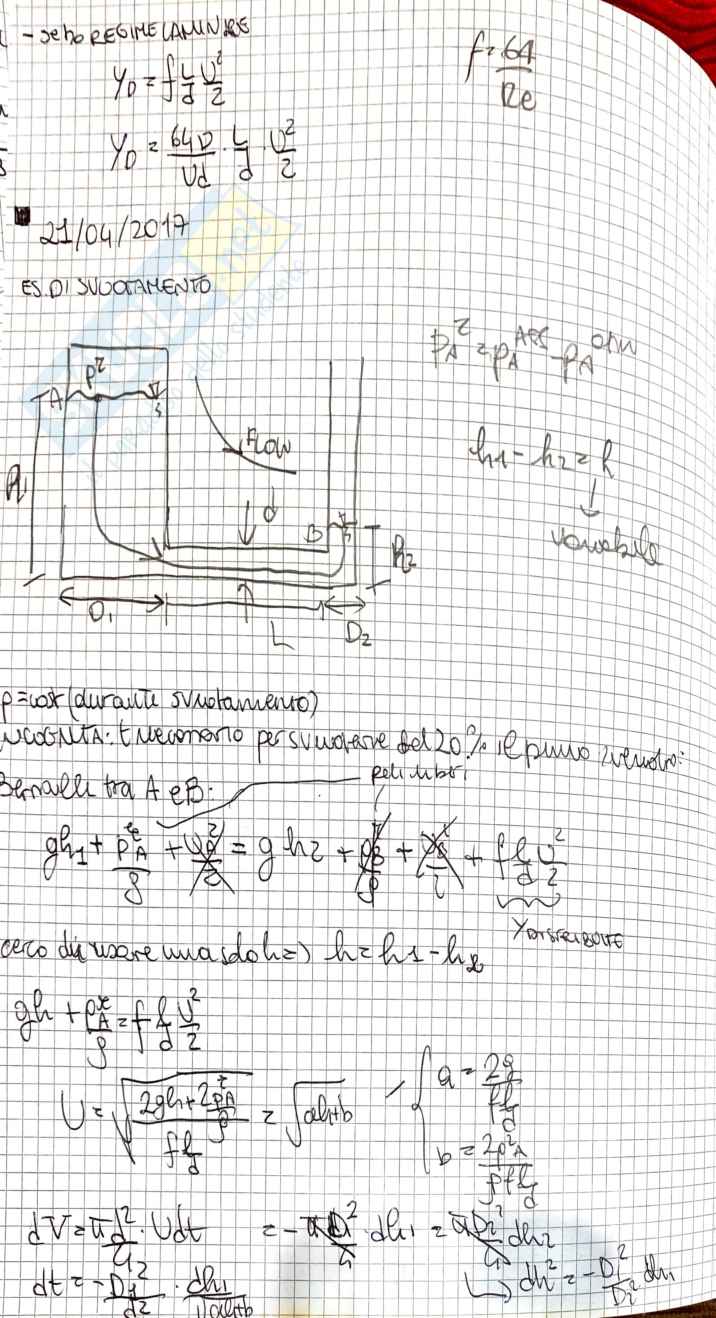 - se ho REGIME LAMINARE
f = 64/Re
y_D = f L/d U²/2
y_D = 64ν/Ud · L/d · U²/2
21/04/2017
ES. DI SVUOTAMENTO
p_A^z = p_A^ASS - p_A^atm
A p^z
FLOW
h1 - h2 = h
h1
d
B
h2
variabile
D1
L
D2
p = cost (durante svuotamento)
INCOGNITA: t necessario per svuotare del 20% il primo
Bernoulli tra A e B:
peli liberi
gh1 + p_A^z/ρ + U²/2 = gh2 + p_B/ρ + U²/2 + f L/d U²/2
Y DISTRIBUITE
cerco di usare una sola h => h = h1 - h2
gh + p_A^z/ρ = f L/d U²/2
U = √((2gh + 2p_A^z/ρ)/(f L/d)) = √(ah+b)
a = 2g/(f L/d)
b = 2p^z_A/(ρ f L/d)
dV = πd²/4 · U dt = -πD1²/4 · dh1 = πD2²/4 dh2
dt = -D1²/d² · dh1/√(ah+b)
dh2 = -D1²/D2² dh1